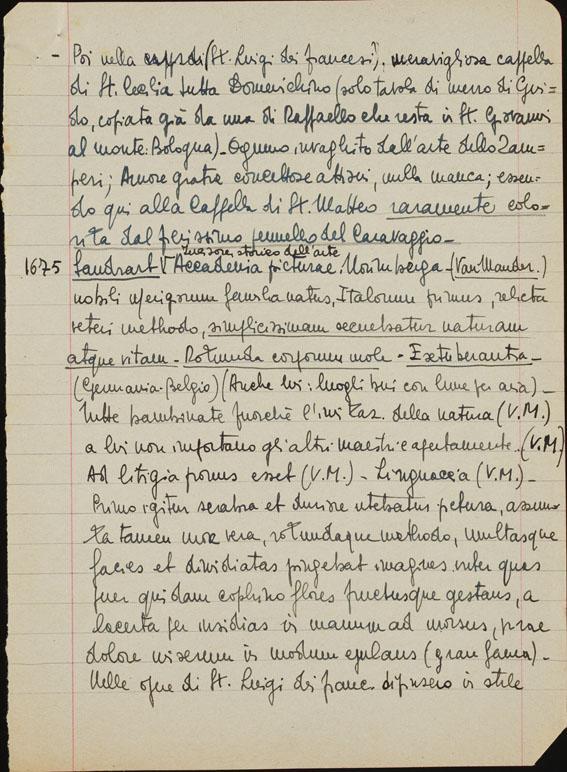 - Poi nella capp. di (St. Luigi dei francesi?). meravigliosa cappella
di St. Cecilia tutta Domenichino (solo tavola di mezzo di Gui=
do, copiata già da una di Raffaello che resta in St. Giovanni
al monte: Bologna) - Ognuno invaghito dall'arte dello Zam=
pieri; Amore gratie concettose attioni, nulla manca; essen-
do qui alla Cappella di St. Matteo raramente colo-
rita dal fierissimo pennello del Caravaggio -
storico dell'arte
1675 Sandrart Accademia picturae. Norimberga - (Van Mander.)
nobili familia natus, Italorum primus, relicta
veteri methodo, simplicissimam sectabatur naturam
atque vitam - Rotunda corporum mole - Extuberantia -
(Germania - Belgio) (Anche lui: luoghi bui con lume per aria) -
Tutte bambinate fuorchè l'imitaz. della natura (V.M.)
a lui non importano gli altri maestri e apertamente. (V.M.)
Ad litigia pronus esset (V.M.) - Linguaccia (V.M.) -
Primo igitur scabra et duriore utebatur pictura, assum-
ta tamen mox vera, rotundaque methodo, multasque
facies et dimidiatas pingebat imagines inter quas
puer quidam cophino flores fructusque gestans, a
lacerta per insidias in manum ad morsus, prae
dolore miserum in modum ejulans (gran fama) -
Nelle opere di St. Luigi dei franc. dipinsero in stile